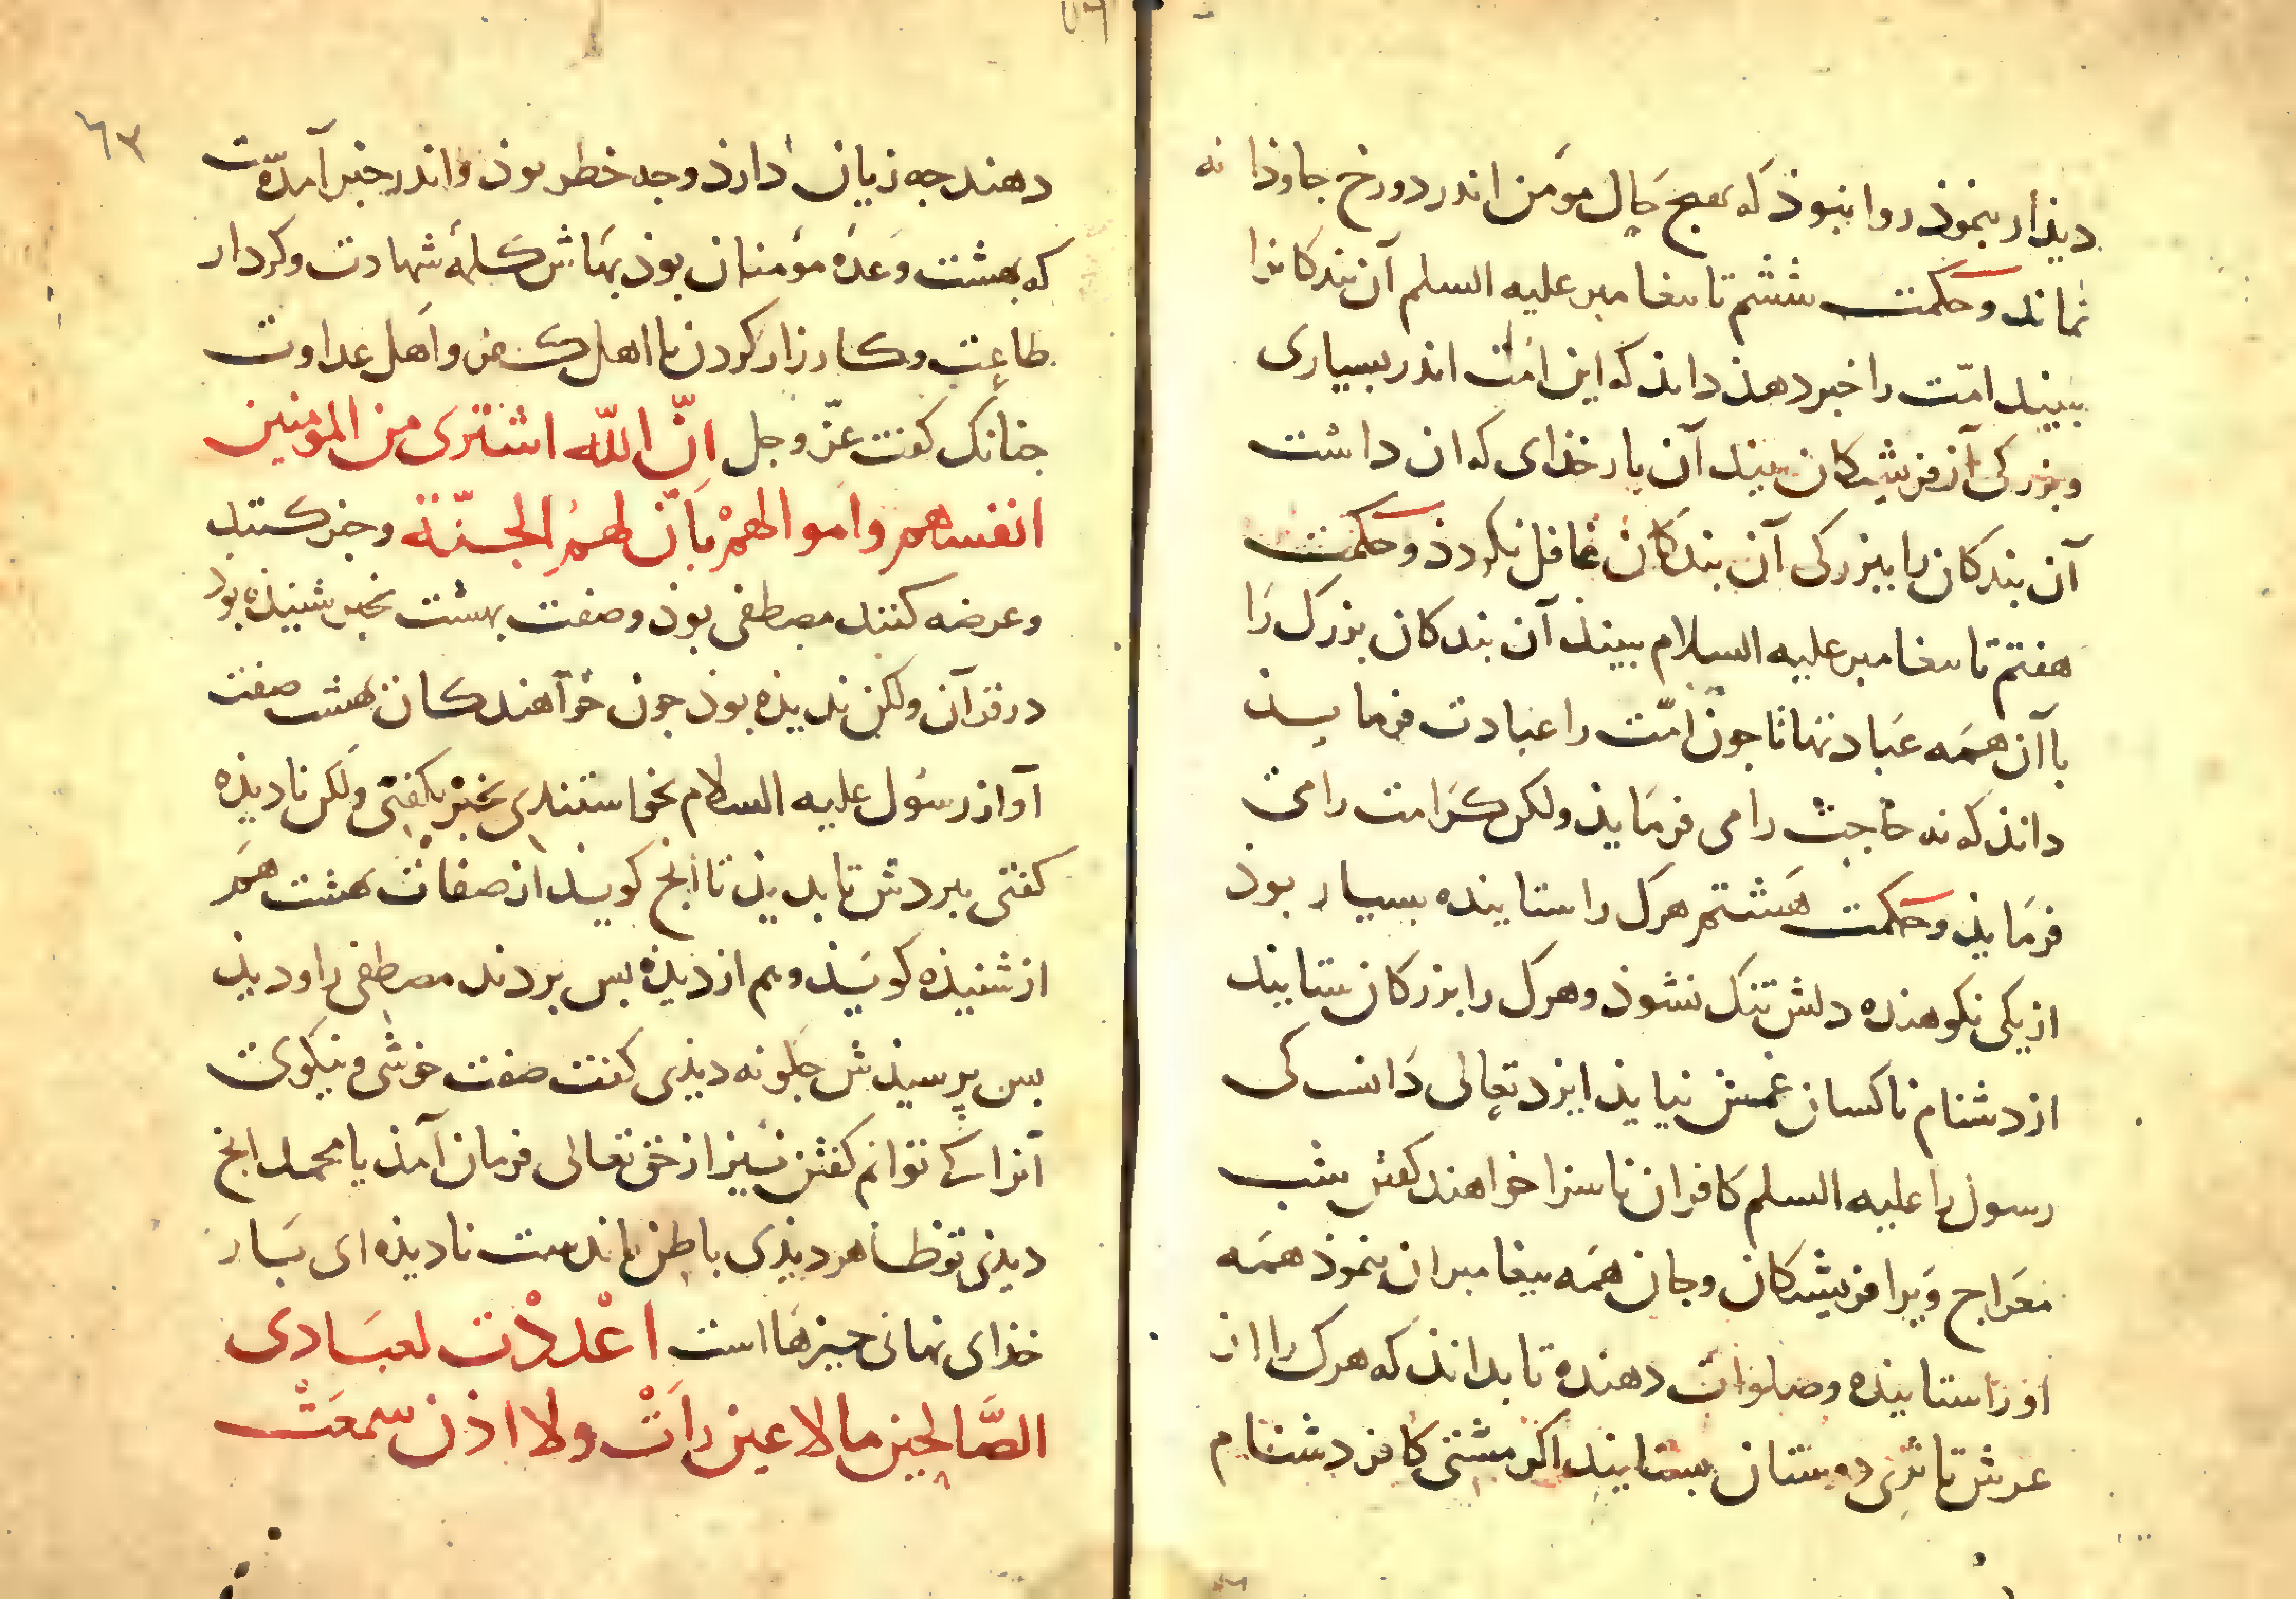 دیذار بنموذ روا نبوذ که بهیج حال مؤمن اندر دورخ جاوذا نه
نماند وحکمت ششم تا بیغامبر علیه السلم آن بندکانرا
ببیند امّت را خبر دهذ داند که این امّت اندر بسیاری
وبزرکی آن فریشتکان ببیند آن بار خذای که ان داشت
آن بندکان را ببزرکی آن بندکان غافل نکردذ وحکمت
هفتم تا بیغامبر علیه السلام ببیند آن بندکان بزرک را
با آن همه عبادتها تا جون امّت را عبادت فرمایذ
داند که نه حاجت را می فرمایذ ولکن کرامت را می
فرمایذ وحکمت هشتم هرک را ستاینده بسیار بوذ
از یکی نکوهنده دلش تنک نشوذ وهرک را بزرکان ستایند
از دشنام ناکسان غمش نیایذ ایزد تعالی دانست کی
رسول را علیه السلم کافران ناسزا خواهند کفتن شب
معراج ویرا فریشتکان وجان همه بیغامبران بنموذ همه
اورا ستاینده وصلوات دهنده تا بداند که هرک را از
عرش تا ثری دوستان بستایند اکر مشتی کافر دشنام
٦٣
دهند جه زیان دارذ وجه خطر بوذ واندر خبر آمدّه ت
که بهشت وعدهٔ مؤمنان بوذ بهاش کلمهٔ شهادت وکردار
طاعت وکارزار کردن با اهل کفر واهل عداوت
جنانک کفت عزّ وجل انّ اللّه اشتری من المومنین
انفسهم واموالهم بانّ لهم الجنّة وخبر کنند
وعرضه کنند مصطفی بوذ وصفت بهشت بخبر شنیذه بوذ
در قرآن ولکن ندیذه بوذ جون خوآهندکان بهشت صفت
آواز رسول علیه السلام بخواستندی بخبر بکفتی ولکن نادیذه
کفتی ببردش تا بدیذ تا آنج کویذ از صفات بهشت هم
از شنیذه کویذ وهم از دیذه بس بردند مصطفی را ودیذ
بس پرسیذش جکونه دیذی کفت صفت خوشی ونیکوی
آنرا کی توانم کفتن نیز از حق تعالی فرمان آمذ یا محمد انج
دیذی تو ظاهر دیذی باطن ماندست نادیذه ای بسار
خذای نهانی جیزها است اعددت لعبادی
الصّالحین ما لا عین رات ولا اذن سمعت